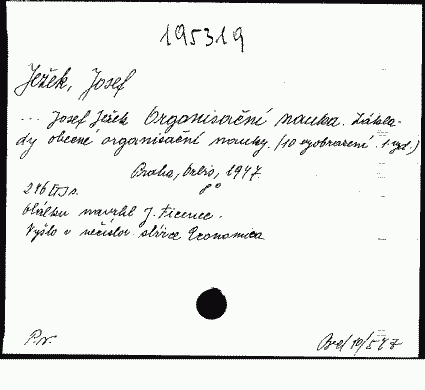 195319
Ježek, Josef
... Josef Ježek Organisační nauka. Zákla-
dy obecné organisační nauky. (10 vyobrazení. 1. vyd.)
Praha, Orbis, 1947.
8°
246 [I] s.
Obálku navrhl J. Ficenec.
Vyšlo v nečíslov. sbírce Economica
P.v.